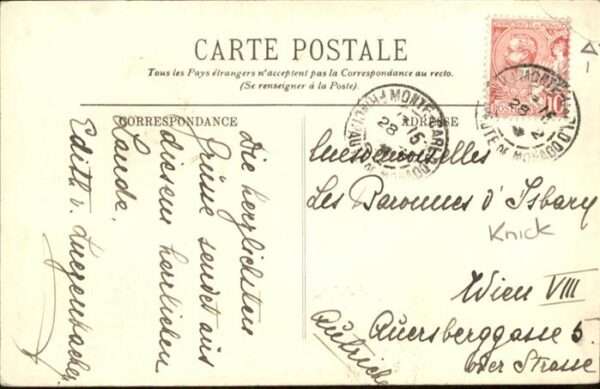 CARTE POSTALE
Tous les Pays étrangers n'acceptent pas la Correspondance au recto.
(Se renseigner à la Poste).
CORRESPONDANCE
ADRESSE
Die herzlichsten
Grüsse sendet aus
diesem herrlichen
Lande.
Edith v.
MONTE-CARLO
PRINCIPAUTÉ DE MONACO
28
15
MONTE-CARLO
PRINCIPAUTÉ DE MONACO
28
15
10
Mesdemoiselles
Les Baronnes d'Isbary
Knick
Wien VIII
Auersberggasse 5
oder Strasse
Autriche